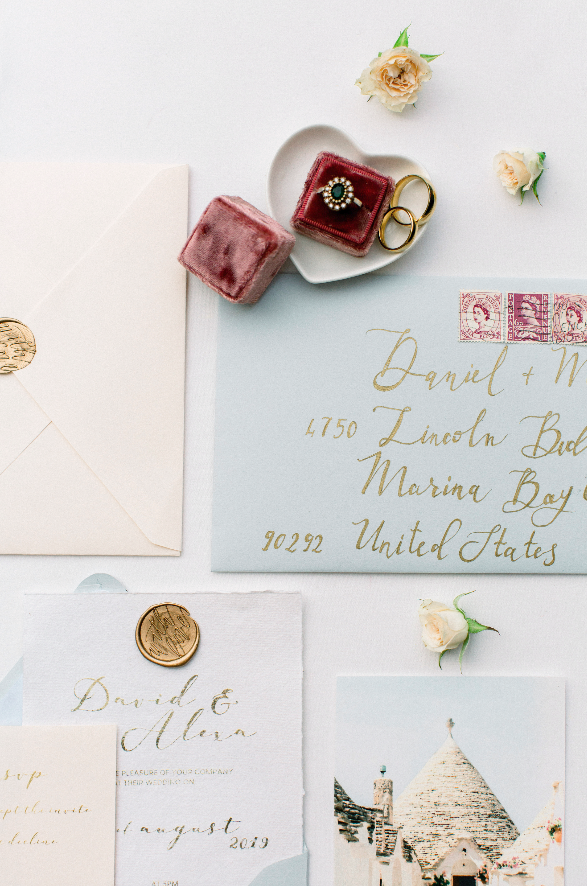 POSTAGE
Daniel + W
4750 Lincoln
Marina Bay
90292 United States
David &
Alena
PLEASURE OF YOUR COMPANY
THEIR WEDDING ON
of august
2019
svp
decline